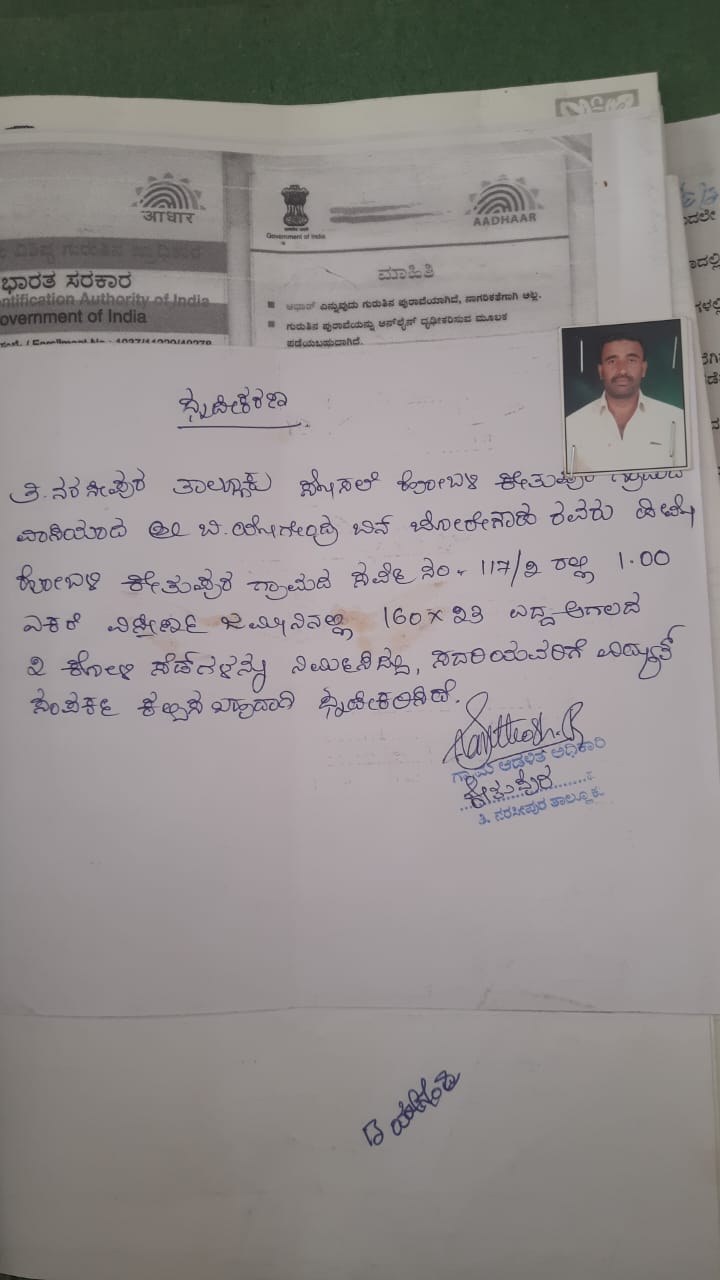 आधार
AADHAAR
Government of India
ಭಾರತ ಸರಕಾರ
ntification Authority of India
overnment of India
ಮಾಹಿತಿ
ಆಧಾರ್ ಎನ್ನುವುದು ಗುರುತಿನ ಪುರಾವೆಯಾಗಿದೆ, ನಾಗರಿಕತೆಗಾಗಿ ಅಲ್ಲ.
ಗುರುತಿನ ಪುರಾವೆಯನ್ನು ಆನ್‌ಲೈನ್ ದೃಢೀಕರಿಸುವ ಮೂಲಕ
ಪಡೆಯಬಹುದಾಗಿದೆ.
ದೃಢೀಕರಣ
ತಿ. ನರಸೀಪುರ ತಾಲ್ಲೂಕು ಹೋಬಳಿ ಕೇತುಪುರ ಗ್ರಾಮದ
ವಾಸಿಯಾದ ಶ್ರೀ ಬಿ. ಯೋಗೇಂದ್ರ ಬಿನ್ ಬೋರೇಗೌಡ ರವರು
ಹೋಬಳಿ ಕೇತುಪುರ ಗ್ರಾಮದ ಸರ್ವೆ ನಂ. 117/2 ರಲ್ಲಿ 1.00
ಎಕರೆ ವಿಸ್ತೀರ್ಣ ಜಮೀನಿನಲ್ಲಿ 160 x 23 ಉದ್ದ ಅಗಲದ
2 ಕೋಳಿ ಶೆಡ್‌ಗಳನ್ನು ನಿರ್ಮಿಸಿದ್ದು, ಸದರಿಯವರಿಗೆ ವಿದ್ಯುತ್
ಸಂಪರ್ಕ ಕಲ್ಪಿಸ ಬಹುದಾಗಿ ದೃಢೀಕರಿಸಿದೆ.
Santhosh. B
ಗ್ರಾಮ ಆಡಳಿತ ಅಧಿಕಾರಿ
ಕೇತುಪುರ
ತಿ. ನರಸೀಪುರ ತಾಲ್ಲೂಕು.